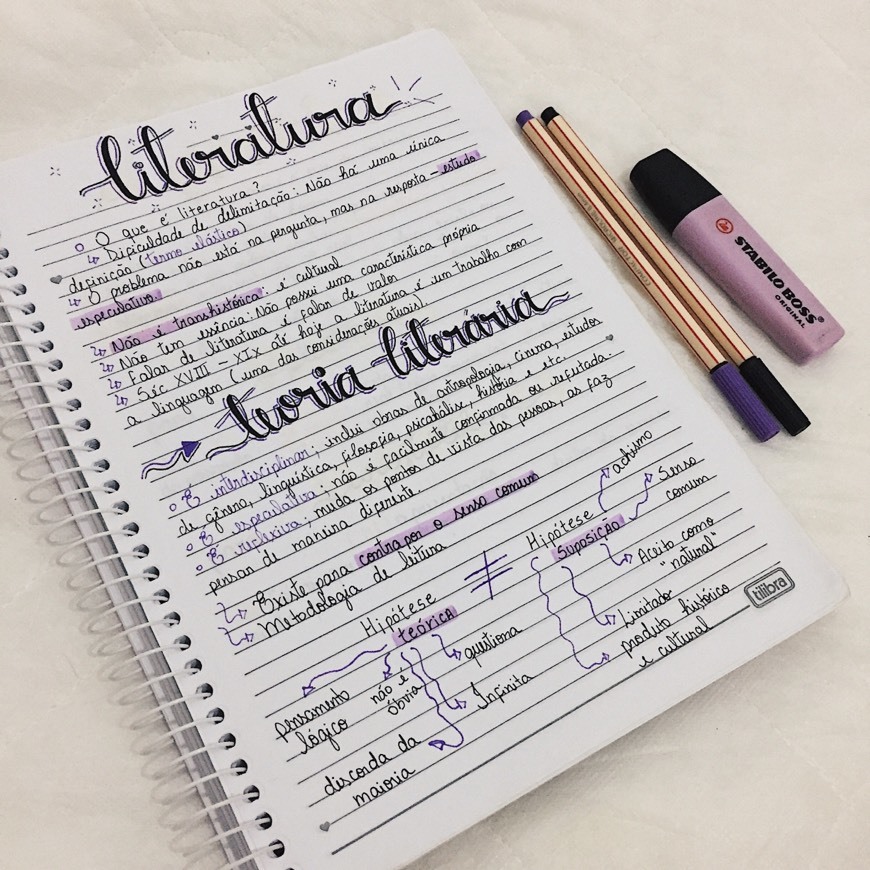 literatura
O que é literatura?
Dificuldade de delimitação: Não há uma única
definição (termo elástico)
O problema não está na pergunta, mas na resposta - estudo
especulativo.
Não é transhistórica: é cultural
Não tem essência: Não possui uma característica própria
Falar de literatura é falar de valor
Séc XVIII - XIX até hoje a literatura é um trabalho com
a linguagem (uma das considerações atuais).
teoria literária
É interdisciplinar; inclui obras de antropologia, cinema, estudos
de gênero, linguística, filosofia, psicanálise, história e etc.
É especulativa; não é facilmente confirmada ou refutada.
É reflexiva; muda os pontos de vista das pessoas, as faz
pensar de maneira diferente
Existe para contrapor o senso comum
Metodologia de leitura
Hipótese
TEÓRICA
pensamento
lógico
não é
óbvia
discorda da
maioria
Infinita
questiona
≠
Hipótese
SUPOSIÇÃO
achismo
Senso
comum
Aceito como
"natural"
Limitado
produto histórico
e cultural
tilibra
STABILO BOSS
ORIGINAL